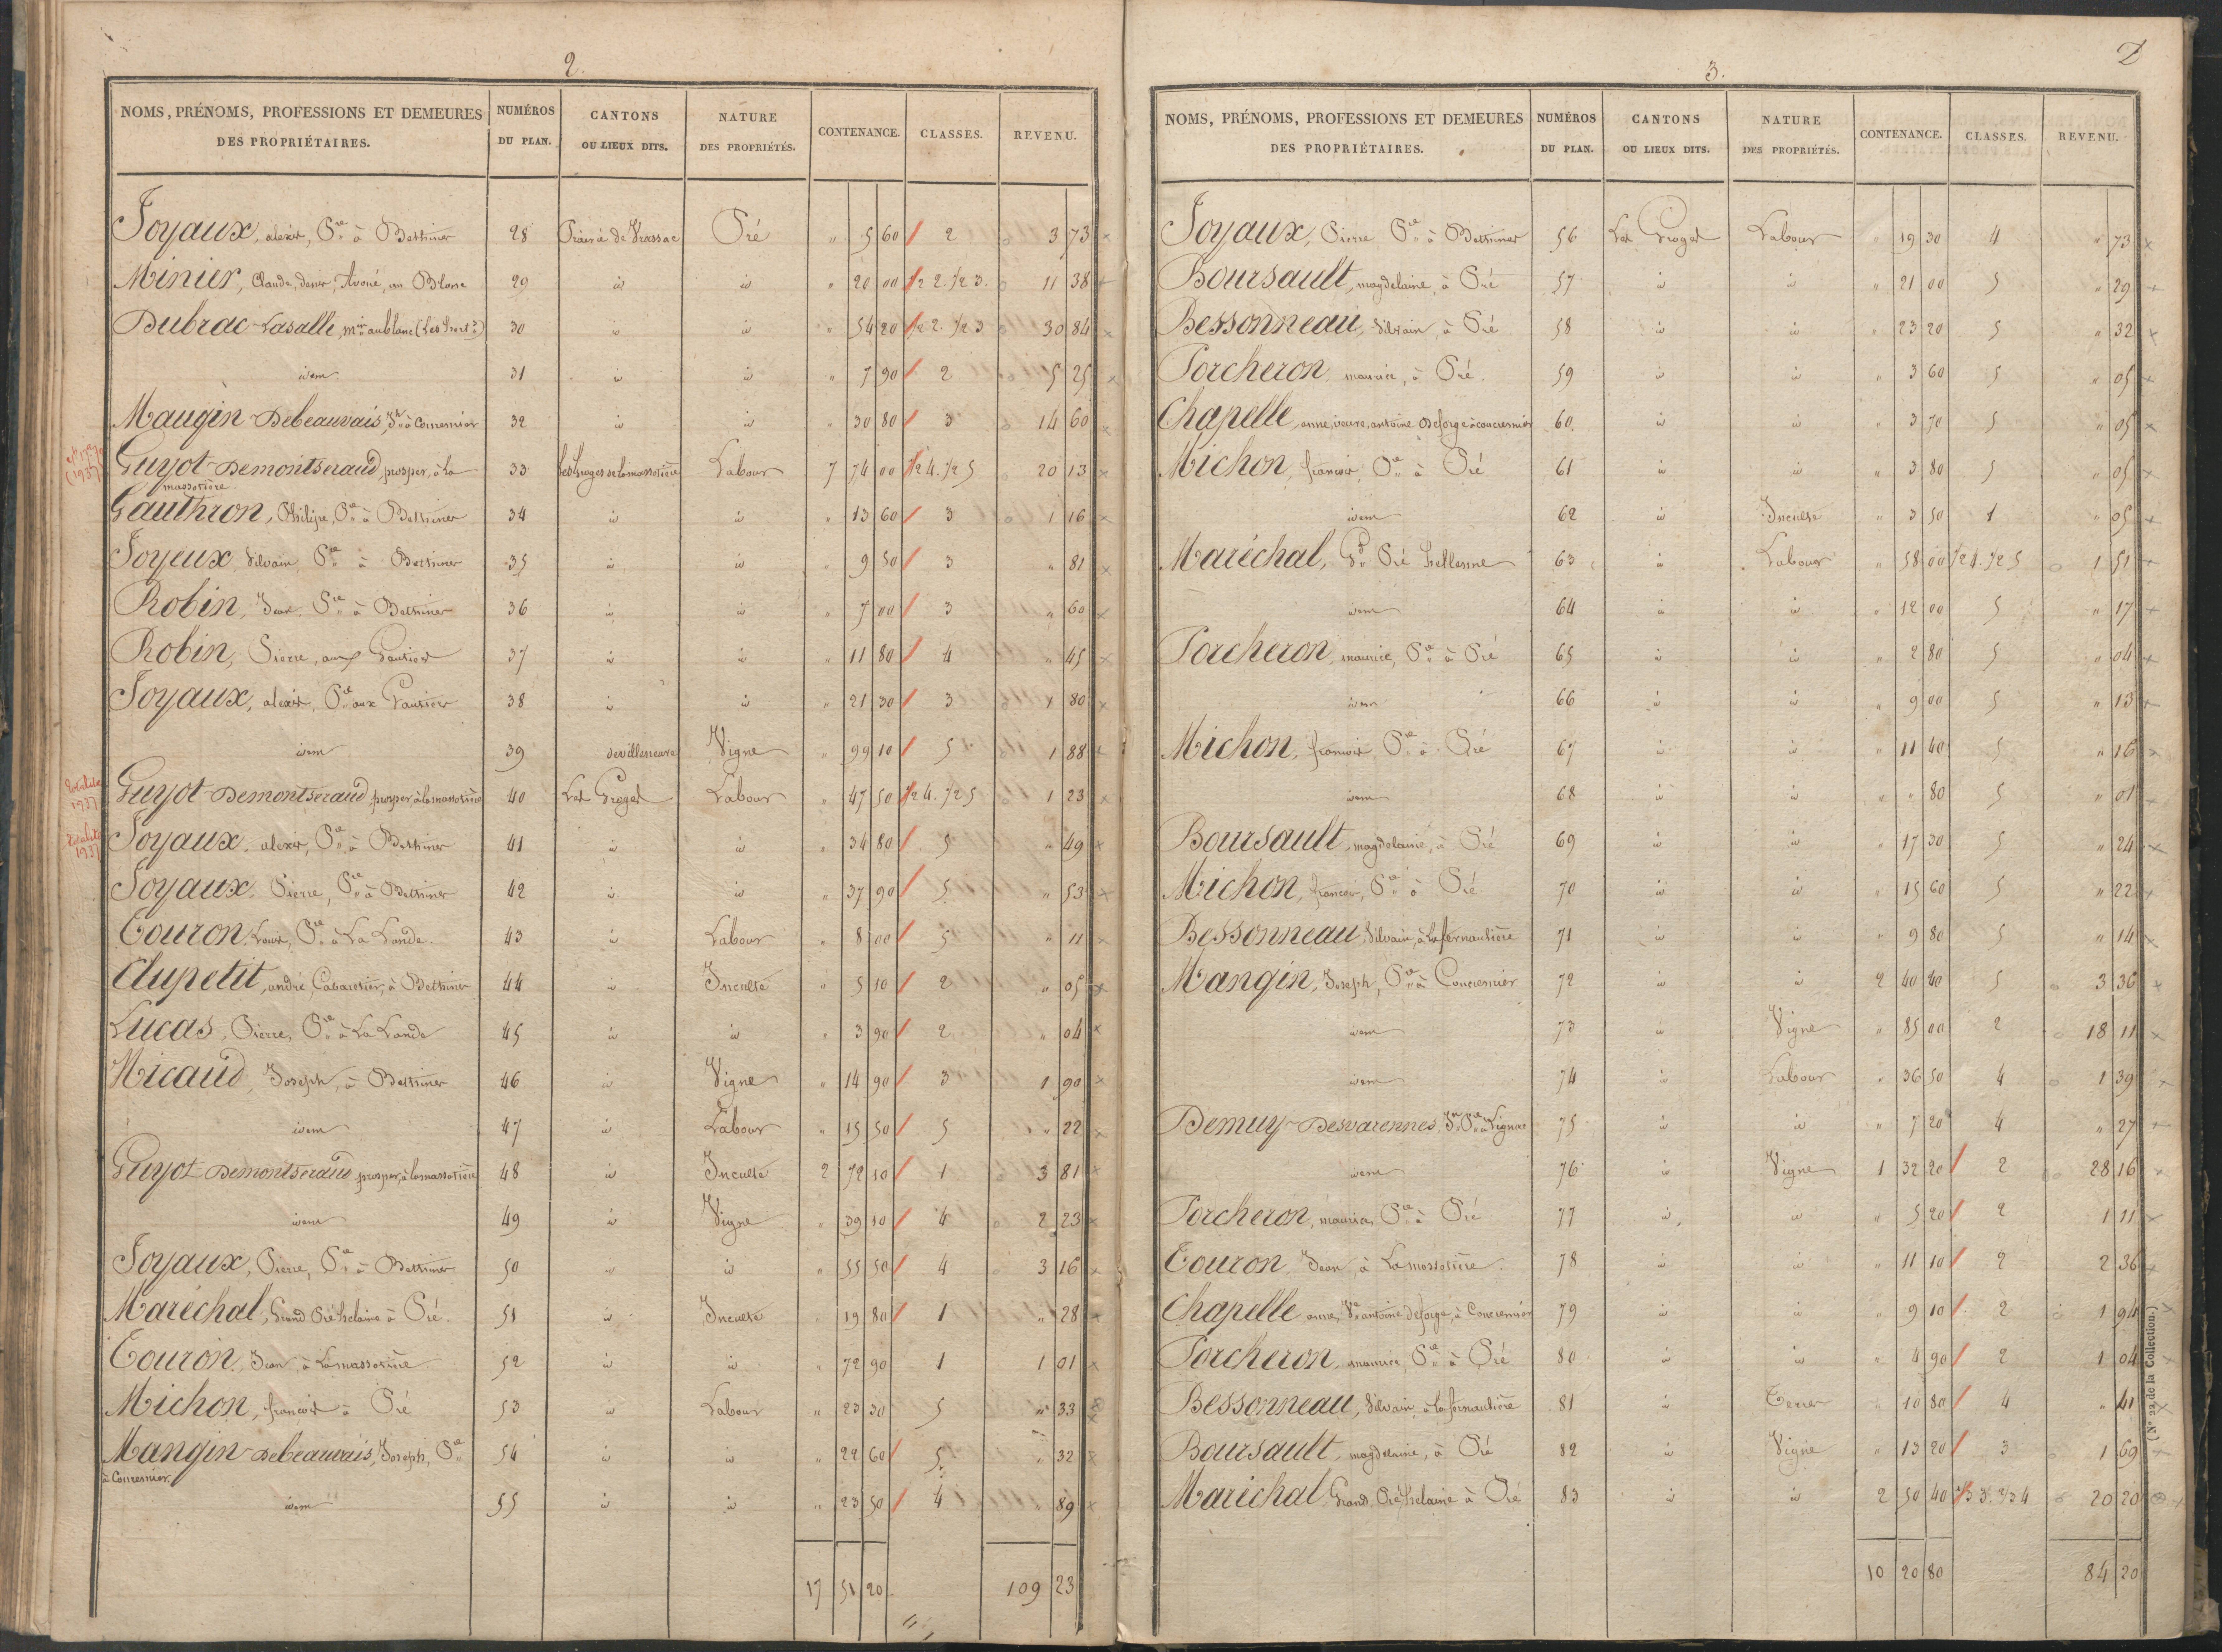 2.
NOMS, PRÉNOMS, PROFESSIONS ET DEMEURES DES PROPRIÉTAIRES. NUMÉROS DU PLAN. CANTONS OU LIEUX DITS. NATURE DES PROPRIÉTÉS. CONTENANCE. CLASSES. REVENU.
Joyaux, alexis, Pre à Bethiner 28 Prairie de Vrassac Pré " 5 60 2 3 73
Minier, Claude, denis, Avoué, au Blanc 29 id id " 20 00 1/2 2. 1/2 3. 11 38
Dubrac-Lasalle, md au blanc 30 id id " 54 20 1/2 2. 1/2 3 30 84
idem 31 id id " 7 90 2 5 25
Maugin Debeauvais, Jh à Concremier 32 id id " 30 80 3 14 60
(1937)
Guyot Demontseraud, prosper, à la massotière 33 Labour 7 74 00 1/2 4. 1/2 5 20 13
Gauthron, Philipe, Pre à Bethiner 34 id id " 13 60 3 1 16
Joyeux, Silvain, Pre à Bethiner 35 id id " 9 50 3 " 81
Robin, Jean, Pre à Bethiner 36 id id " 7 00 3 " 60
Robin, Pierre, aux Gautier 37 id id " 11 80 4 " 45
Joyaux, alexis, Pre aux Gautier 38 id id " 21 30 3 1 80
idem 39 devilleneuve Vigne " 99 10 5 1 88
1937
Guyot Demontseraud prosper à la massotière 40 Les Groges Labour " 47 50 1/2 4. 1/2 5 1 23
1937
Joyaux, alexis, Pre à Bethiner 41 id id " 34 80 5 " 49
Joyaux, Pierre, Pre à Bethiner 42 id id " 37 90 5 " 53
Touron, Louis, Pre à La Lande 43 id Labour " 8 00 5 " 11
Aupetit, andré, Cabaretier, à Bethiner 44 id Inculte " 5 10 2 " 05
Lucas, Pierre, Pre à La Lande 45 id id " 3 90 2 " 04
Micaud, Joseph, à Bethiner 46 id Vigne " 14 90 3 1 90
idem 47 id Labour " 15 50 5 " 22
Guyot Demontseraud prosper, à la massotière 48 id Inculte 2 72 10 1 3 81
idem 49 id Vigne " 39 10 4 2 23
Joyaux, Pierre, Pre à Bethiner 50 id id " 55 50 4 3 16
Maréchal, Grand Pré helaine à Pré 51 id Inculte " 19 80 1 " 28
Touron, Jean, à Lamassotière 52 id id " 72 90 1 1 01
Michon, francois à Pré 53 id Labour " 23 30 5 " 33
Mangin Debeauvais, Joseph, Pre à Concremier 54 id id " 22 60 5 " 32
idem 55 id id " 23 50 4 " 89
17 51 20 109 23
2
3.
NOMS, PRÉNOMS, PROFESSIONS ET DEMEURES DES PROPRIÉTAIRES. NUMÉROS DU PLAN. CANTONS OU LIEUX DITS. NATURE DES PROPRIÉTÉS. CONTENANCE. CLASSES. REVENU.
Joyaux, Pierre Pre à Bethiner 56 Les Groges Labour " 19 30 4 " 73
Boursault, magdelaine, à Pré 57 id id " 21 00 5 " 29
Bessonneau, Silvain, à Pré 58 id id " 23 20 5 " 32
Porcheron, maurice, à Pré 59 id id " 3 60 5 " 05
Chapelle, anne, veuve, antoine Deforge à concremier 60 id id " 3 70 5 " 05
Michon, francois, Pre à Pré 61 id id " 3 80 5 " 05
idem 62 id Inculte " 3 50 1 " 05
Maréchal, Gd Pré hellenne 63 id Labour " 58 00 1/2 4. 1/2 5 1 51
idem 64 id id " 12 00 5 " 17
Porcheron, maurice, Pre à Pré 65 id id " 2 80 5 " 04
idem 66 id id " 9 00 5 " 13
Michon, francois, Pre à Pré 67 id id " 11 40 5 " 16
idem 68 id id " " 80 5 " 01
Boursault, magdelaine, à Pré 69 id id " 17 30 5 " 24
Michon, francois, Pre à Pré 70 id id " 15 60 5 " 22
Bessonneau, Silvain, à lafernautière 71 id id " 9 80 5 " 14
Mangin, Joseph, Pre à Concremier 72 id id 2 40 40 5 3 36
idem 73 id Vigne " 85 00 2 18 11
idem 74 id Labour " 36 50 4 1 39
Demuy-Desvarennes, Jn Pre à Vignac 75 id id " 7 20 4 " 27
idem 76 id Vigne 1 32 20 2 28 16
Porcheron, maurice, Pre à Pré 77 id id " 5 20 2 1 11
Touron, Jean, à Lamassotière 78 id id " 11 10 2 2 36
Chapelle, anne, Ve antoine deforge, à Concremier 79 id id " 9 10 2 1 94
Porcheron, maurice, Pre à Pré 80 id id " 4 90 2 1 04
Bessonneau, Silvain, à Lafernautière 81 id Terre " 10 80 4 " 41
Boursault, magdelaine, à Pré 82 id Vigne " 13 20 3 1 69
Maréchal Grand Pré helaine à Pré 83 id id 2 50 40 1/3 3. 2/3 4 20 20
10 20 80 84 20
(N° 22 de la Collection.)